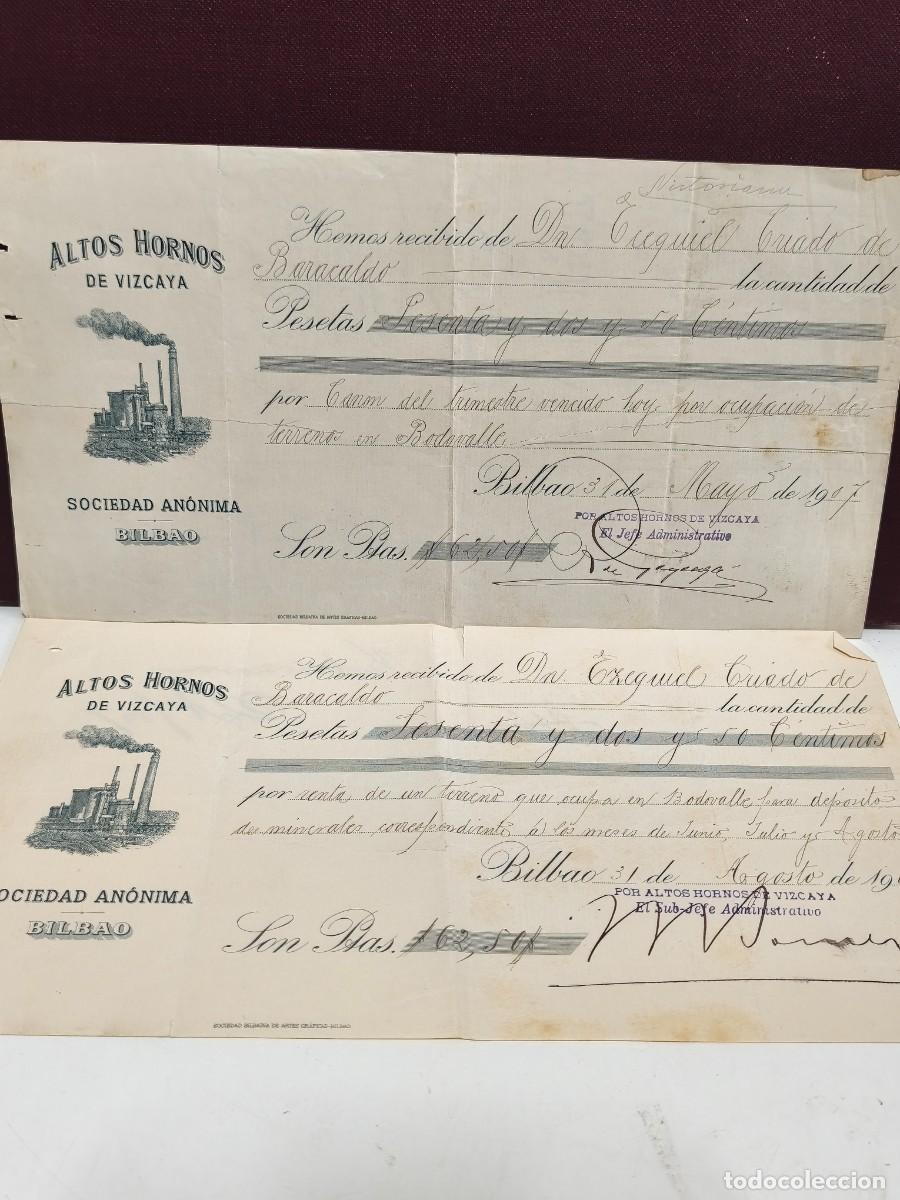 ALTOS HORNOS
DE VIZCAYA
SOCIEDAD ANÓNIMA
BILBAO
Hemos recibido de Dn Ezequiel Criado de
Baracaldo la cantidad de
Pesetas Sesenta y dos y 50 Céntimos
por Canon del trimestre vencido hoy por ocupación de
terrenos en Bodovalle
Bilbao 31 de Mayo de 1907
POR ALTOS HORNOS DE VIZCAYA
El Jefe Administrativo
Son Ptas. # 62,50 #
SOCIEDAD BILBAINA DE ARTES GRÁFICAS-BILBAO
ALTOS HORNOS
DE VIZCAYA
OCIEDAD ANÓNIMA
BILBAO
Hemos recibido de Dn Ezequiel Criado de
Baracaldo la cantidad de
Pesetas Sesenta y dos y 50 Céntimos
por renta de un terreno que ocupa en Bodovalle para depósito
de minerales correspondiente á los meses de Junio, Julio y Agosto
Bilbao 31 de Agosto de 190
POR ALTOS HORNOS DE VIZCAYA
El Sub-Jefe Administrativo
Son Ptas. # 62,50 #
SOCIEDAD BILBAINA DE ARTES GRÁFICAS-BILBAO
todocoleccion